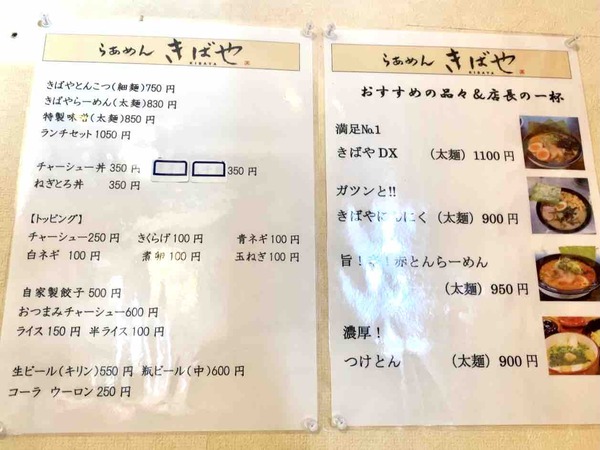 らぁめん きばや
KIBAYA
きばやとんこつ(細麺)750 円
きばやらーめん(太麺)830 円
特製味噌(太麺)850 円
ランチセット1050 円
チャーシュー丼 350 円 350 円
ねぎとろ丼 350 円
【トッピング】
チャーシュー250 円 きくらげ100 円 青ネギ100 円
白ネギ 100 円 煮卵100 円 玉ねぎ100 円
自家製餃子500 円
おつまみチャーシュー600円
ライス150 円 半ライス100 円
生ビール(キリン)550 円 瓶ビール(中)600円
コーラ ウーロン250 円
らぁめん きばや
KIBAYA
おすすめの品々&店長の一杯
満足№1
きばや DX (太麺) 1100 円
ガツンと!!
きばやにんにく (太麺) 900 円
旨!辛!赤とんらーめん
(太麺) 950 円
濃厚!
つけとん (太麺) 900 円